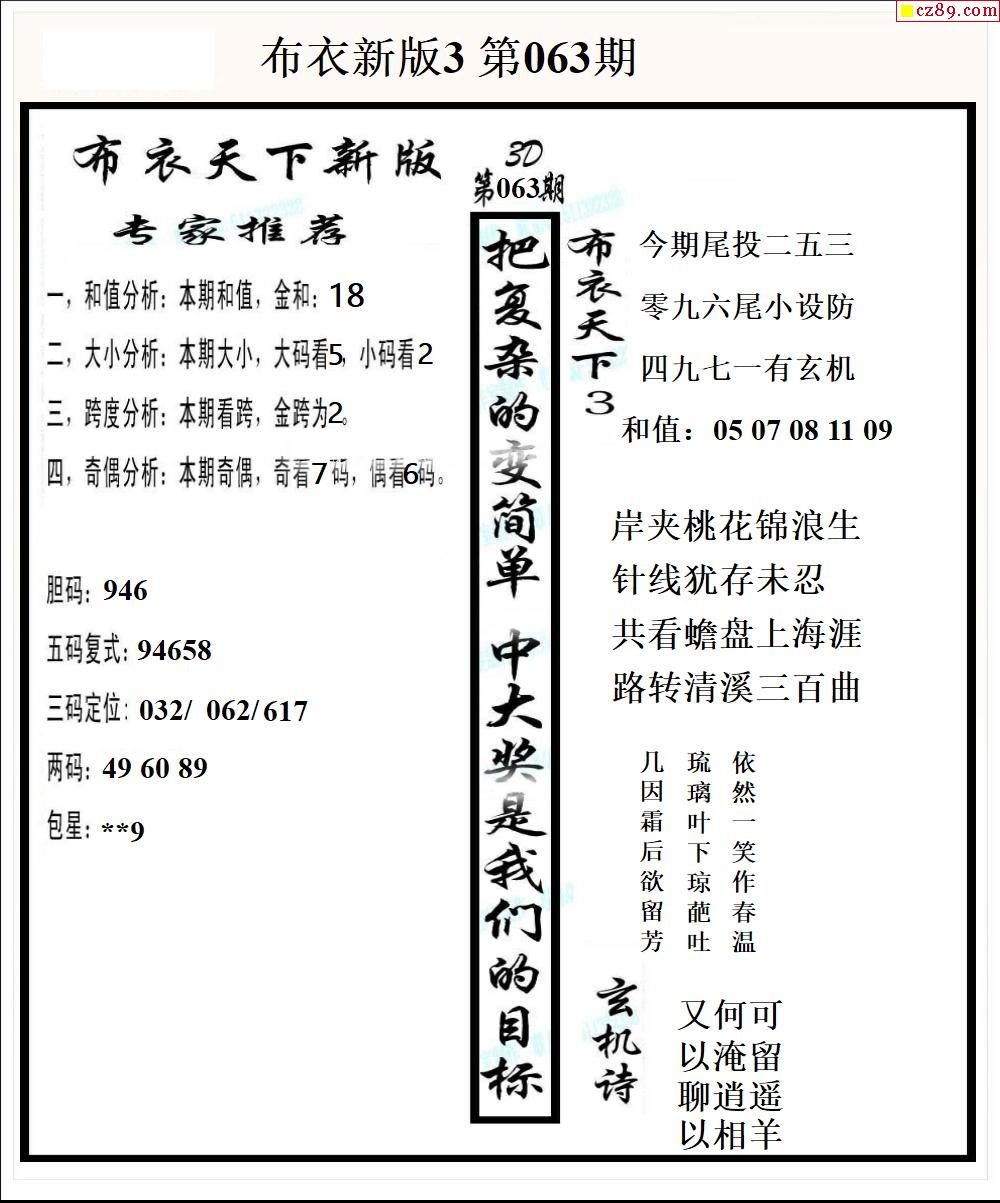 cz89.com
布衣新版3 第063期
布衣天下新版
专家推荐
一，和值分析：本期和值，金和：18
二，大小分析：本期大小，大码看5，小码看2
三，跨度分析：本期看跨，金跨为2。
四，奇偶分析：本期奇偶，奇看7码，偶看6码。
胆码：946
五码复式：94658
三码定位：032/ 062/617
两码：49 60 89
包星：**9
3D
第063期
把复杂的变简单 中大奖是我们的目标
布衣天下3
今期尾投二五三
零九六尾小设防
四九七一有玄机
和值：05 07 08 11 09
岸夹桃花锦浪生
针线犹存未忍
共看蟾盘上海涯
路转清溪三百曲
依然一笑作春温
琉璃叶下琼葩吐
几因霜后欲留芳
玄机诗
又何可
以淹留
聊逍遥
以相羊